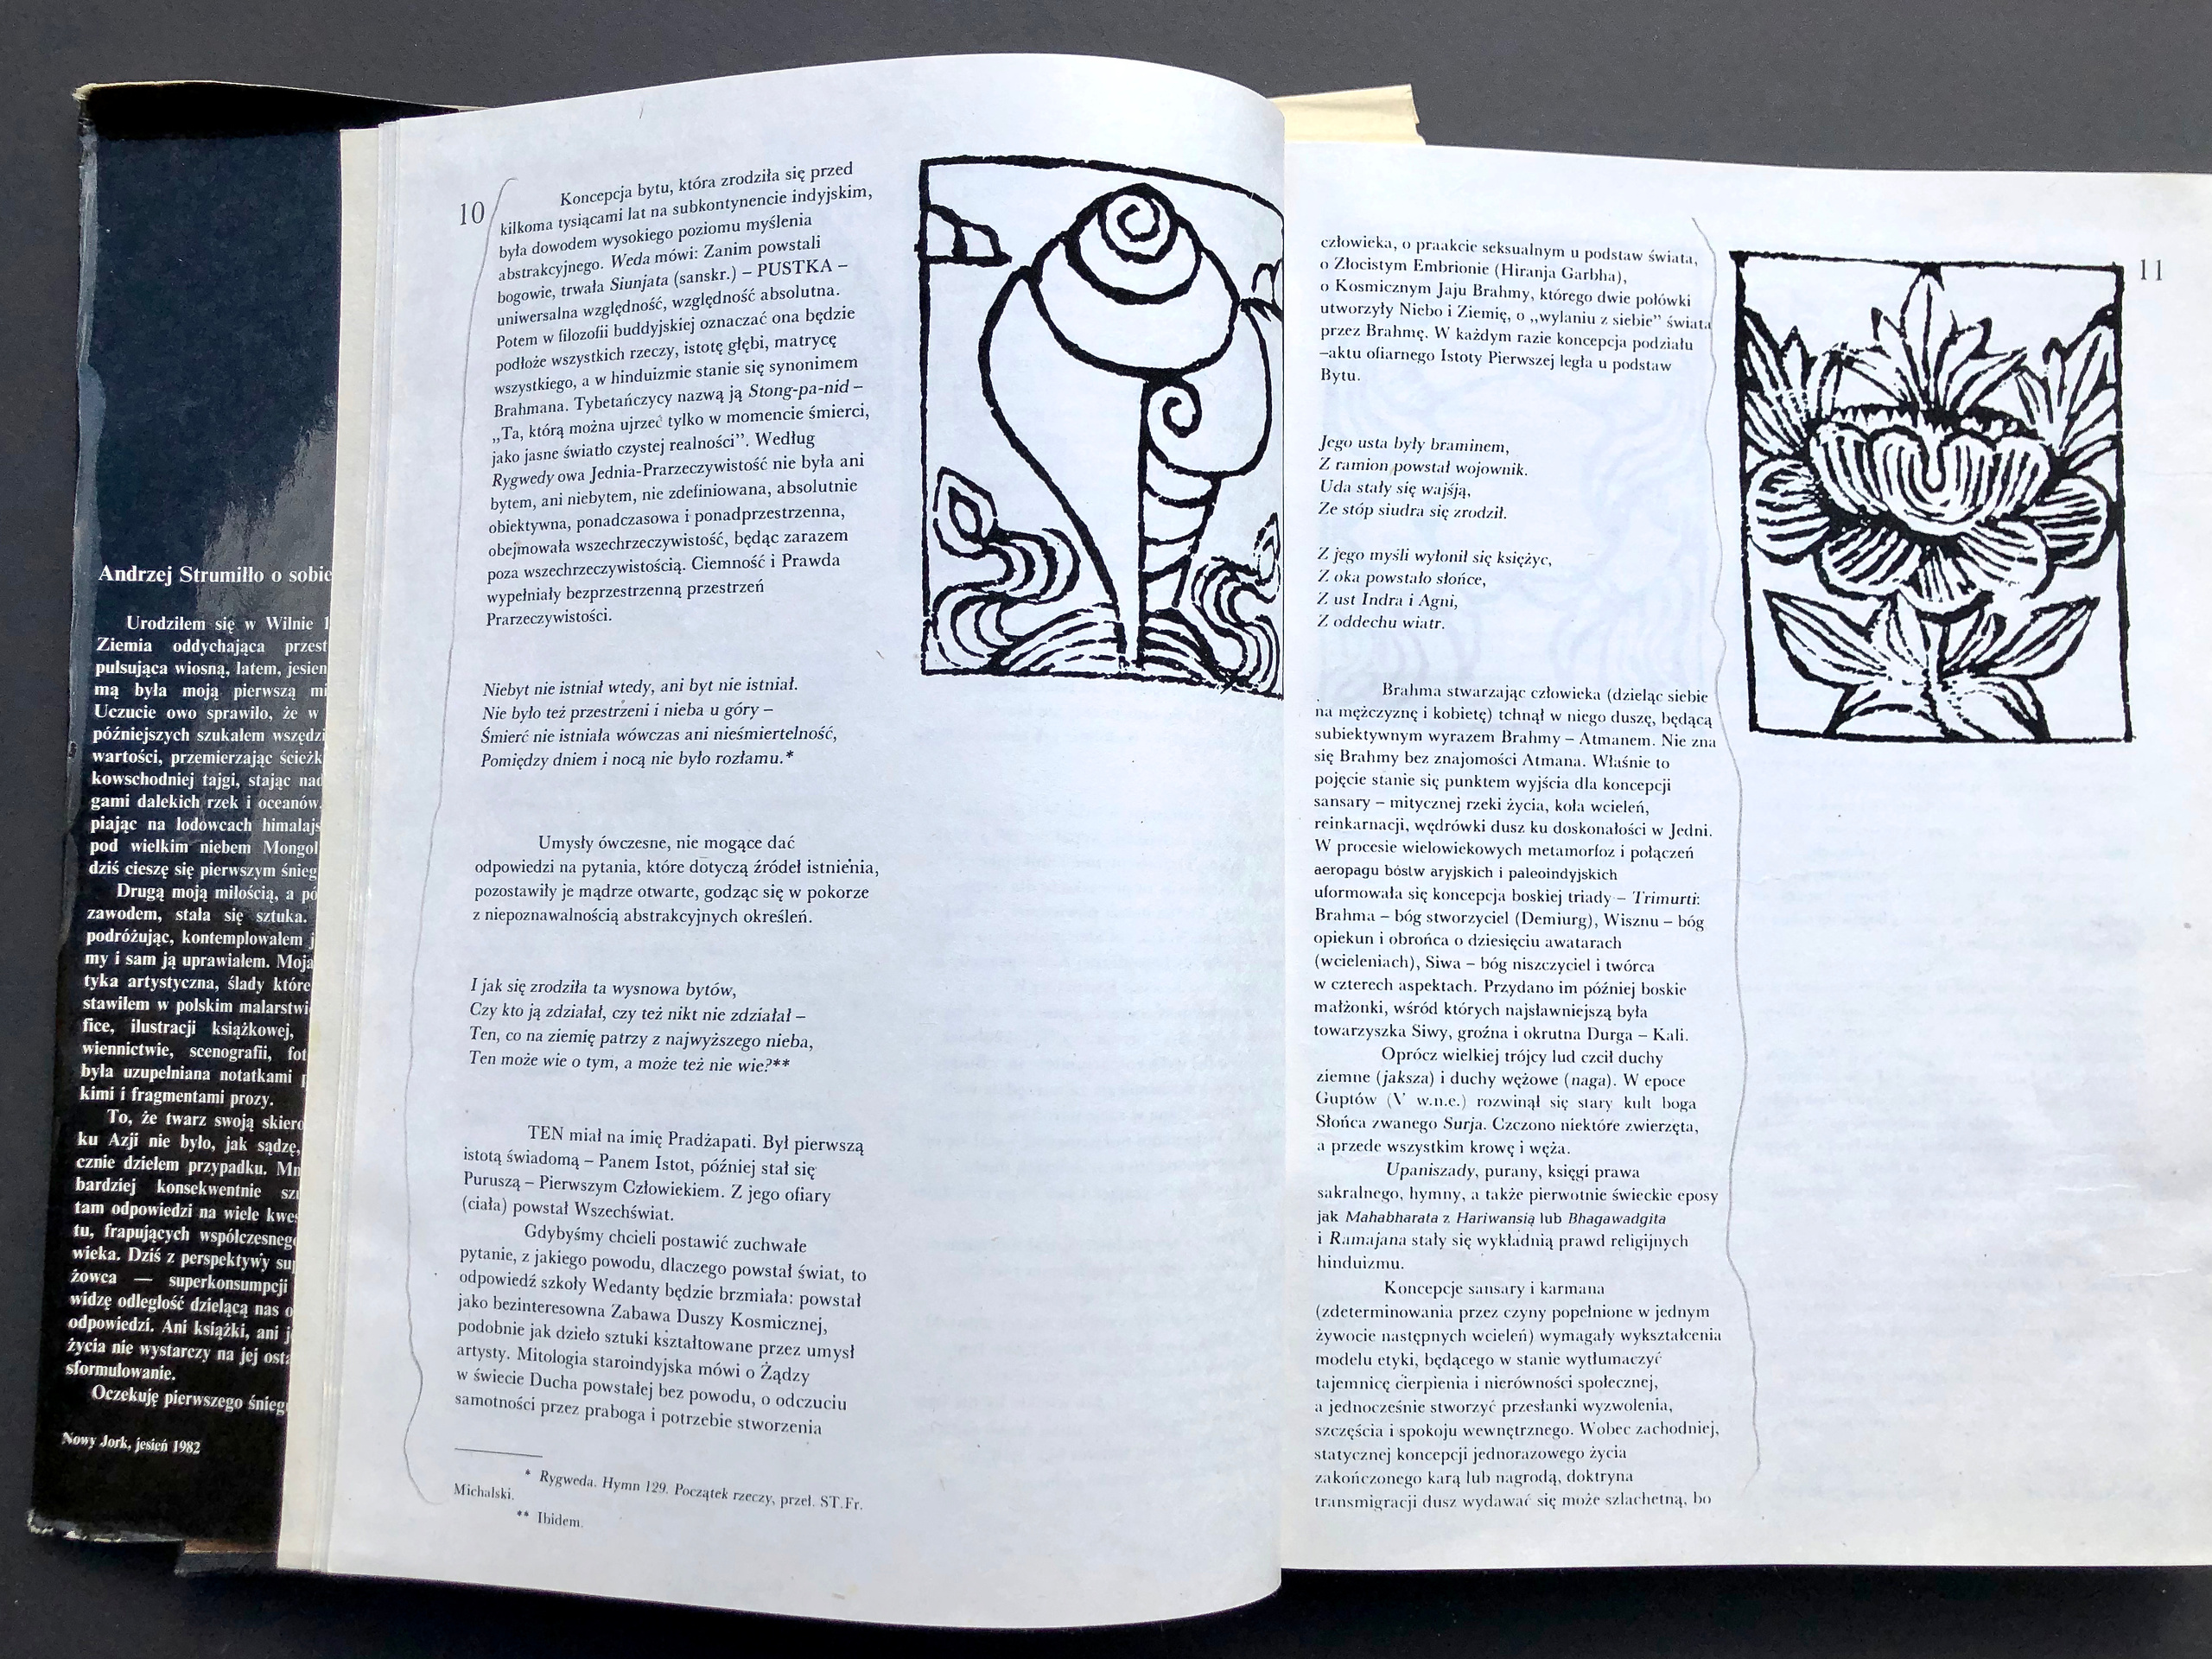 Andrzej Strumiłło o sobie
Urodziłem się w Wilnie
Ziemia oddychająca
pulsująca wiosną, latem,
mą była moją pierwszą
Uczucie owo sprawiło, że w
późniejszych szukałem
wartości, przemierzając
kowschodniej tajgi, stając
gami dalekich rzek i oceanów.
piając na lodowcach
pod wielkim niebem
dziś cieszę się pierwszym
Drugą moją miłością, a
zawodem, stała się sztuka.
podróżując, kontemplowałem
my i sam ją uprawiałem. Moja
tyka artystyczna, ślady które
stawiłem w polskim
fice, ilustracji książkowej,
wiennictwie, scenografii,
była uzupełniana notatkami
kimi i fragmentami prozy.
To, że twarz swoją
ku Azji nie było, jak sądzę,
cznie dziełem przypadku.
bardziej konsekwentnie
tam odpowiedzi na wiele
tu, frapujących
wieka. Dziś z perspektywy
żowca — superkonsumpcji
widzę odległość dzielącą nas
odpowiedzi. Ani książki, ani
życia nie wystarczy na jej
sformułowanie.
Oczekuję pierwszego
Nowy Jork, jesień 1982
10
Koncepcja bytu, która zrodziła się przed
kilkoma tysiącami lat na subkontynencie indyjskim,
była dowodem wysokiego poziomu myślenia
abstrakcyjnego. Weda mówi: Zanim powstali
bogowie, trwała Siunjata (sanskr.) – PUSTKA –
uniwersalna względność, względność absolutna.
Potem w filozofii buddyjskiej oznaczać ona będzie
podłoże wszystkich rzeczy, istotę głębi, matrycę
wszystkiego, a w hinduizmie stanie się synonimem
Brahmana. Tybetańczycy nazwą ją Stong-pa-nid –
„Ta, którą można ujrzeć tylko w momencie śmierci,
jako jasne światło czystej realności”. Według
Rygwedy owa Jednia-Prarzeczywistość nie była ani
bytem, ani niebytem, nie zdefiniowana, absolutnie
obiektywna, ponadczasowa i ponadprzestrzenna,
obejmowała wszechrzeczywistość, będąc zarazem
poza wszechrzeczywistością. Ciemność i Prawda
wypełniały bezprzestrzenną przestrzeń
Prarzeczywistości.
Niebyt nie istniał wtedy, ani byt nie istniał.
Nie było też przestrzeni i nieba u góry –
Śmierć nie istniała wówczas ani nieśmiertelność,
Pomiędzy dniem i nocą nie było rozłamu.*
Umysły ówczesne, nie mogące dać
odpowiedzi na pytania, które dotyczą źródeł istnienia,
pozostawiły je mądrze otwarte, godząc się w pokorze
z niepoznawalnością abstrakcyjnych określeń.
I jak się zrodziła ta wysnowa bytów,
Czy kto ją zdziałał, czy też nikt nie zdziałał –
Ten, co na ziemię patrzy z najwyższego nieba,
Ten może wie o tym, a może też nie wie?**
TEN miał na imię Pradżapati. Był pierwszą
istotą świadomą – Panem Istot, później stał się
Puruszą – Pierwszym Człowiekiem. Z jego ofiary
(ciała) powstał Wszechświat.
Gdybyśmy chcieli postawić zuchwałe
pytanie, z jakiego powodu, dlaczego powstał świat, to
odpowiedź szkoły Wedanty będzie brzmiała: powstał
jako bezinteresowna Zabawa Duszy Kosmicznej,
podobnie jak dzieło sztuki kształtowane przez umysł
artysty. Mitologia staroindyjska mówi o Żądzy
w świecie Ducha powstałej bez powodu, o odczuciu
samotności przez praboga i potrzebie stworzenia
* Rygweda. Hymn 129. Początek rzeczy, przeł. ST.Fr.
Michalski.
** Ibidem.
11
człowieka, o praakcie seksualnym u podstaw świata,
o Złocistym Embrionie (Hiranja Garbha),
o Kosmicznym Jaju Brahmy, którego dwie połówki
utworzyły Niebo i Ziemię, o „wylaniu z siebie” świata
przez Brahmę. W każdym razie koncepcja podziału
–aktu ofiarnego Istoty Pierwszej legła u podstaw
Bytu.
Jego usta były braminem,
Z ramion powstał wojownik.
Uda stały się wajśją,
Ze stóp siudra się zrodził.
Z jego myśli wyłonił się księżyc,
Z oka powstało słońce,
Z ust Indra i Agni,
Z oddechu wiatr.
Brahma stwarzając człowieka (dzieląc siebie
na mężczyznę i kobietę) tchnął w niego duszę, będącą
subiektywnym wyrazem Brahmy – Atmanem. Nie zna
się Brahmy bez znajomości Atmana. Właśnie to
pojęcie stanie się punktem wyjścia dla koncepcji
sansary – mitycznej rzeki życia, koła wcieleń,
reinkarnacji, wędrówki dusz ku doskonałości w Jedni.
W procesie wielowiekowych metamorfoz i połączeń
aeropagu bóstw aryjskich i paleoindyjskich
uformowała się koncepcja boskiej triady – Trimurti:
Brahma – bóg stworzyciel (Demiurg), Wisznu – bóg
opiekun i obrońca o dziesięciu awatarach
(wcieleniach), Siwa – bóg niszczyciel i twórca
w czterech aspektach. Przydano im później boskie
małżonki, wśród których najsławniejszą była
towarzyszka Siwy, groźna i okrutna Durga – Kali.
Oprócz wielkiej trójcy lud czcił duchy
ziemne (jaksza) i duchy wężowe (naga). W epoce
Guptów (V w.n.e.) rozwinął się stary kult boga
Słońca zwanego Surja. Czczono niektóre zwierzęta,
a przede wszystkim krowę i węża.
Upaniszady, purany, księgi prawa
sakralnego, hymny, a także pierwotnie świeckie eposy
jak Mahabharata z Hariwansią lub Bhagawadgita
i Ramajana stały się wykładnią prawd religijnych
hinduizmu.
Koncepcje sansary i karmana
(zdeterminowania przez czyny popełnione w jednym
żywocie następnych wcieleń) wymagały wykształcenia
modelu etyki, będącego w stanie wytłumaczyć
tajemnicę cierpienia i nierówności społecznej,
a jednocześnie stworzyć przesłanki wyzwolenia,
szczęścia i spokoju wewnętrznego. Wobec zachodniej,
statycznej koncepcji jednorazowego życia
zakończonego karą lub nagrodą, doktryna
transmigracji dusz wydawać się może szlachetną, bo